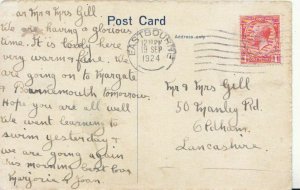 Post Card
Dear Mr & Mrs Gill
We are having a glorious
time. It is lovely here
very warm & fine. We
are going on to Margate
& Bournemouth tomorrow.
Hope you are all well
We went learning to
swim yesterday &
we are going again
this morning
Marjorie & Joan.
EASTBOURNE
19 SEP
1924
Address only
Mr & Mrs Gill
50 Manley Rd.
Oldham,
Lancashire